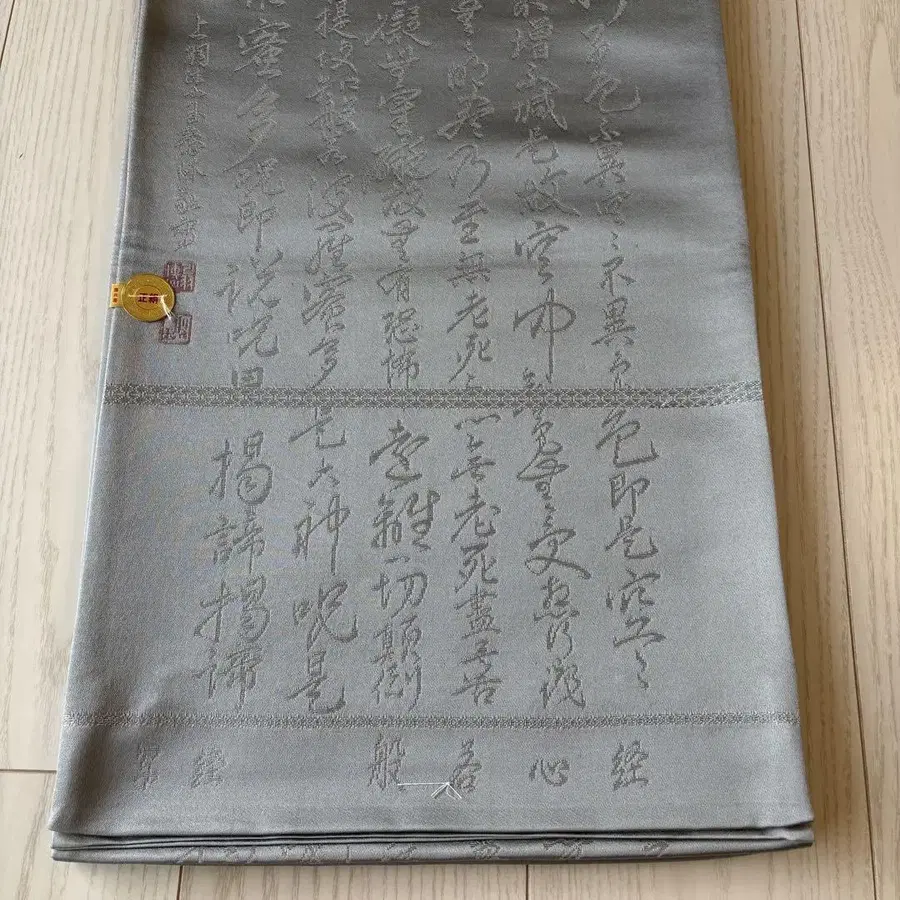 色不異空々不異色色即是空空々
增不減是故空中無色無受想行識
無明盡乃至無老死亦無老死盡無苦
礙無罣礙故無有恐怖遠離一切顛倒
提故知般若波羅蜜多是大神呪是
蜜多呪即說呪曰揭諦揭諦
正絹
経心若般経